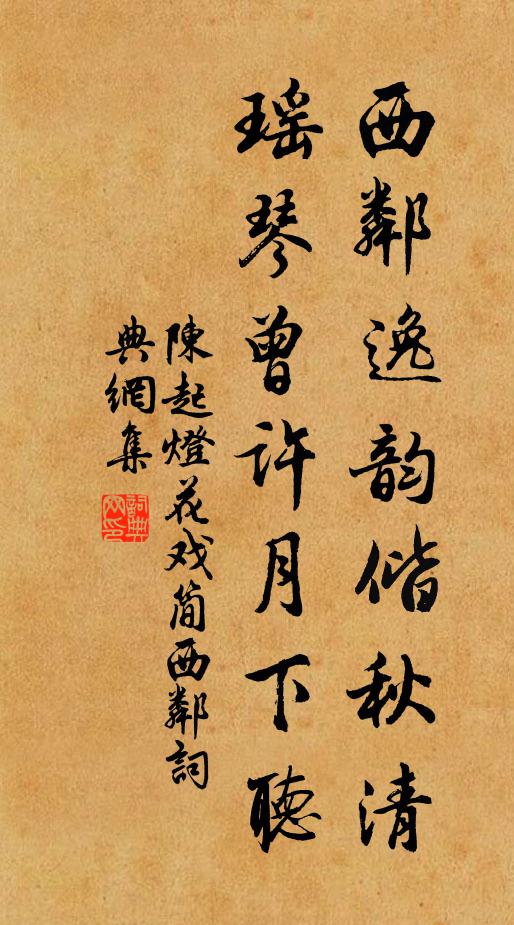 西鄰逸韵偕秋清
瑶琴曾许月下聽
陳起燈花戏简西鄰詞
典網集
詞典
网印